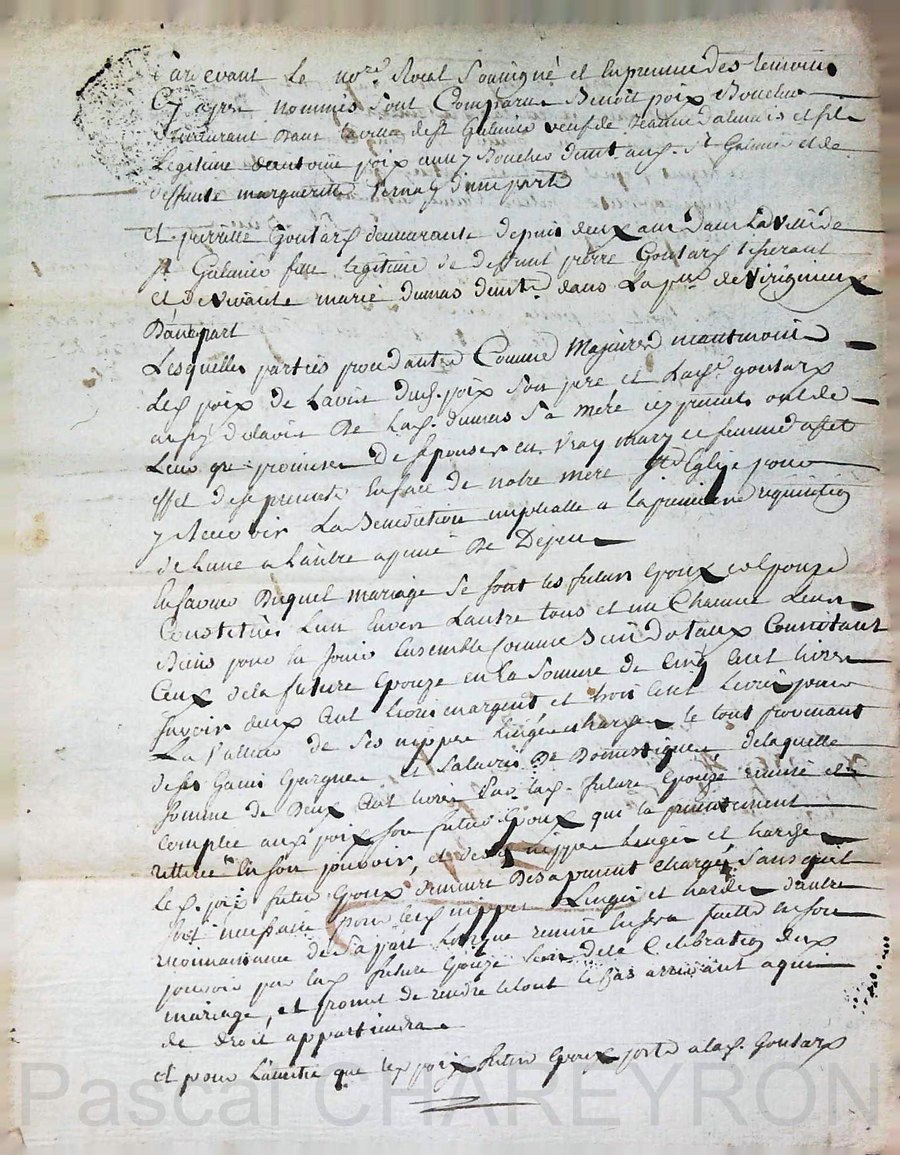 Pardevant Le nore. Royal Soussigné et En presence des temoins
Cy apres nommés sont Comparus Benoit poix Boucher
demeurant dans la ville de st Galmier veuf de Jeanne dalmais et fils
Legitime d'antoine poix aussy Boucher dudt st Galmier et de
deffunte margueritte d'une part
Et pierrette Goutard demeurante depuis deux ans Dans La ville de
st Galmier fille legitime de deffunt pierre Goutard tisserant
et de vivante marie dumas dans La psse de Virigneux
D'autre part
Lesquelles parties procedantes Comme Majeures
Led. poix de Lavis dud. poix Son pere et Lad. goutard
aussy de lavis De Lad. dumas Sa mere icy presents ont de
Leur gre promises De s'epouser en vray mary et femme
effet de se presenter En face de notre mere Ste Eglise pour
y Recevoir La Benediction nuptialle a la premiere requisition
de Lune a Lautre a peine De Depens
En faveur Duquel mariage Se sont les futurs Epoux et Epouze
Constitués L'un Envers Lautre tous et un Chacuns Leurs
Biens pour En Jouir Ensemble Comme Biens Dotaux Consistant
Ceux de la future Epouze en La Somme de Cinq Cent livres
Savoir deux Cent livres en argent et trois Cent livres pour
La Valleur de Ses nippes Linges et hardes le tout provenant
de ses Gains Epargnes et Salaires De Domestique, delaquelle
Somme de Deux Cent livres Lad. future Epouze remise et
Comptée aud. poix son futur Epoux qui la presentement
retirée En son pouvoir, et des nippes Linges et hardes
le d. poix futur Epoux demeure Des a present Chargé Sans quil
soit necessaire pour lesd. nippes Linges et hardes d'autre
reconnaissance de Sa part Lorsque remise En sera faitte En son
pouvoir par lad. future Epouze Lors de la Celebration dud.
mariage, et promet de rendre le tout le cas arrivant a qui
de droit appartiendra
et pour L'amitié que led. poix futur Epoux porte a lad. Goutard
Pascal CHAREYRON